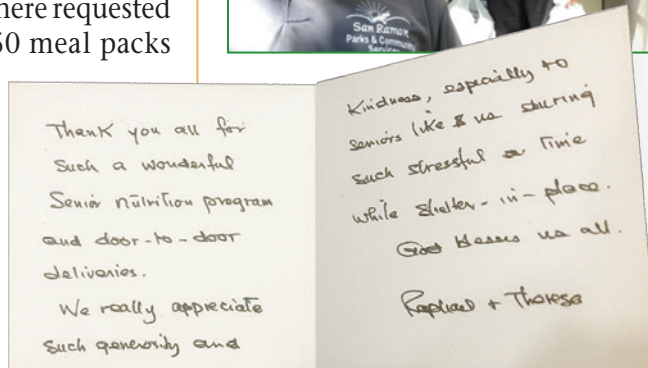 here requested
60 meal packs
San Ramon
Parks & Community
Services
Thank you all for
Such a wonderful
Senior nutrition program
and door-to-door
deliveries.
We really appreciate
such generosity and
Kindness, especially to
seniors like us during
such stressful a Time
while shelter-in-place.
God blesses us all.
Raphael + Theresa